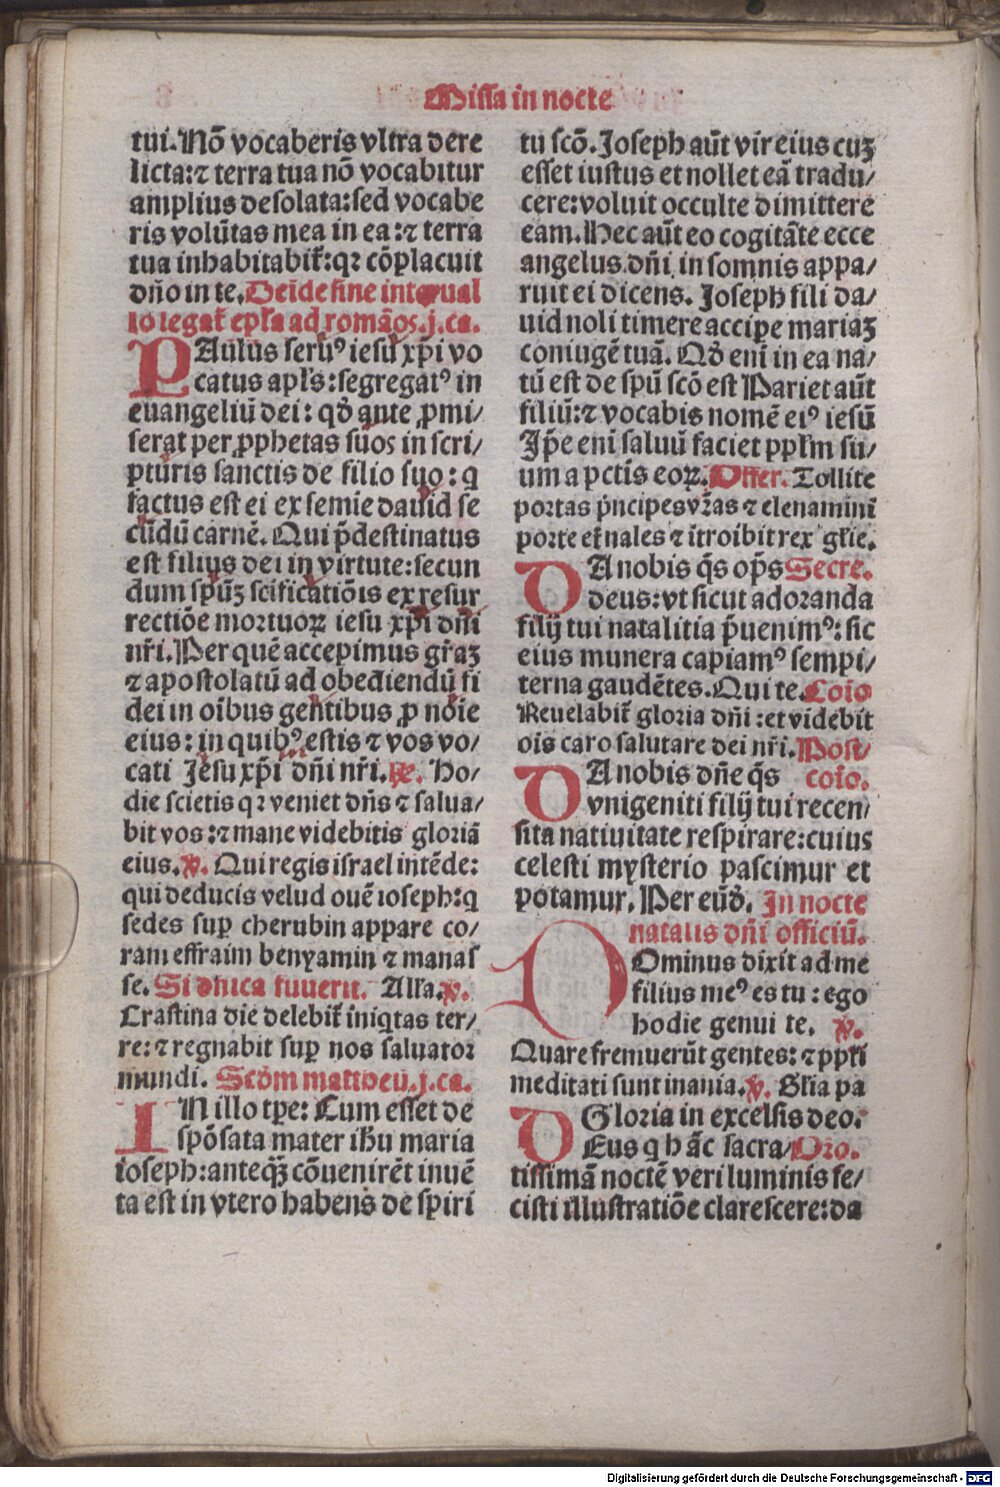 Missa in nocte
tui. Nō vocaberis vltra dere
licta: ⁊ terra tua nō vocabitur
amplius desolata: sed vocabe
ris volūtas mea in ea: ⁊ terra
tua inhabitabit̄: qꝛ cōplacuit
dño in te. Deīde sine interual
lo legat̄ epl̄a ad romāos. j. ca.
PAulus seruꝰ iesu xp̄i vo
catus apl̄s: segregatꝰ in
euangeliū dei: qd̄ ante ꝓmi/
serat per ꝓphetas suos in scri/
pturis sanctis de filio suo: q
factus est ei ex semie dauid se
cūdū carnē. Qui p̄destinatus
est filius dei in virtute: secun
dum spūʒ scificatiōis ex resur
rectiōe mortuoꝝ iesu xp̄i dñi
nr̄i. Per quē accepimus gr̄aʒ
⁊ apostolatū ad obediendū fi
dei in oībus gentibus ꝓ noīe
eius: in quibꝰ estis ⁊ vos vo/
cati Jesu xp̄i dñi nr̄i. ꝶ. Ho/
die scietis qꝛ veniet dñs ⁊ salua/
bit vos: ⁊ mane videbitis gloriā
eius. ℣. Qui regis israel intēde:
qui deducis velud ouē ioseph: q
sedes suꝑ cherubin appare co/
ram effraim benyamin ⁊ manas
se. Si dñica fuuerit. Alla. ℣.
Crastina die delebit̄ iniqtas ter/
re: ⁊ regnabit suꝑ nos saluator
mundi. Scdm mattheū. j. ca.
IN illo tpe: Cum esset de
spōsata mater ihu maria
ioseph: anteqꝫ cōuenirēt inuē
ta est in vtero habens de spiri
tu scō. Joseph aūt vir eius cuʒ
esset iustus et nollet eā tradu/
cere: voluit occulte dimittere
eam. Hec aūt eo cogitāte ecce
angelus dñi in somnis appa/
ruit ei dicens. Joseph fili da/
uid noli timere accipe mariaʒ
coniugē tuā. Qd̄ enī in ea na/
tū est de spū scō est Pariet aūt
filiū: ⁊ vocabis nomē eiꝰ iesū
Jp̄e enī saluū faciet ppl̄m su/
um a pctīs eoꝝ. Offer. Tollite
portas p̄ncipes vr̄as ⁊ elenaminī
porte et̄nales ⁊ ītroibit rex gl̄ie.
DA nobis q̄s op̄s Secre.
deus: vt sicut adoranda
filij tui natalitia p̄uenimꝰ: sic
eius munera capiamꝰ sempi/
terna gaudētes. Qui te. Coīo
Reuelabit̄ gloria dñi: et videbit
ois caro salutare dei nr̄i. Post/
DA nobis dñe q̄s coīo.
vnigeniti filij tui recen/
sita natiuitate respirare: cuius
celesti mysterio pascimur et
potamur. Per eūd̄. In nocte
natalis dñi officiū.
DOminus dixit ad me
filius meꝰ es tu: ego
hodie genui te. ℣.
Quare fremuerūt gentes: ⁊ ppl̄i
meditati sunt inania. ℣. Gl̄ia pa
Gloria in excelsis deo.
DEus q hāc sacra/ Oro.
tissimā noctē veri luminis fe/
cisti illustratiōe clarescere: da
Digitalisierung gefördert durch die Deutsche Forschungsgemeinschaft - DFG